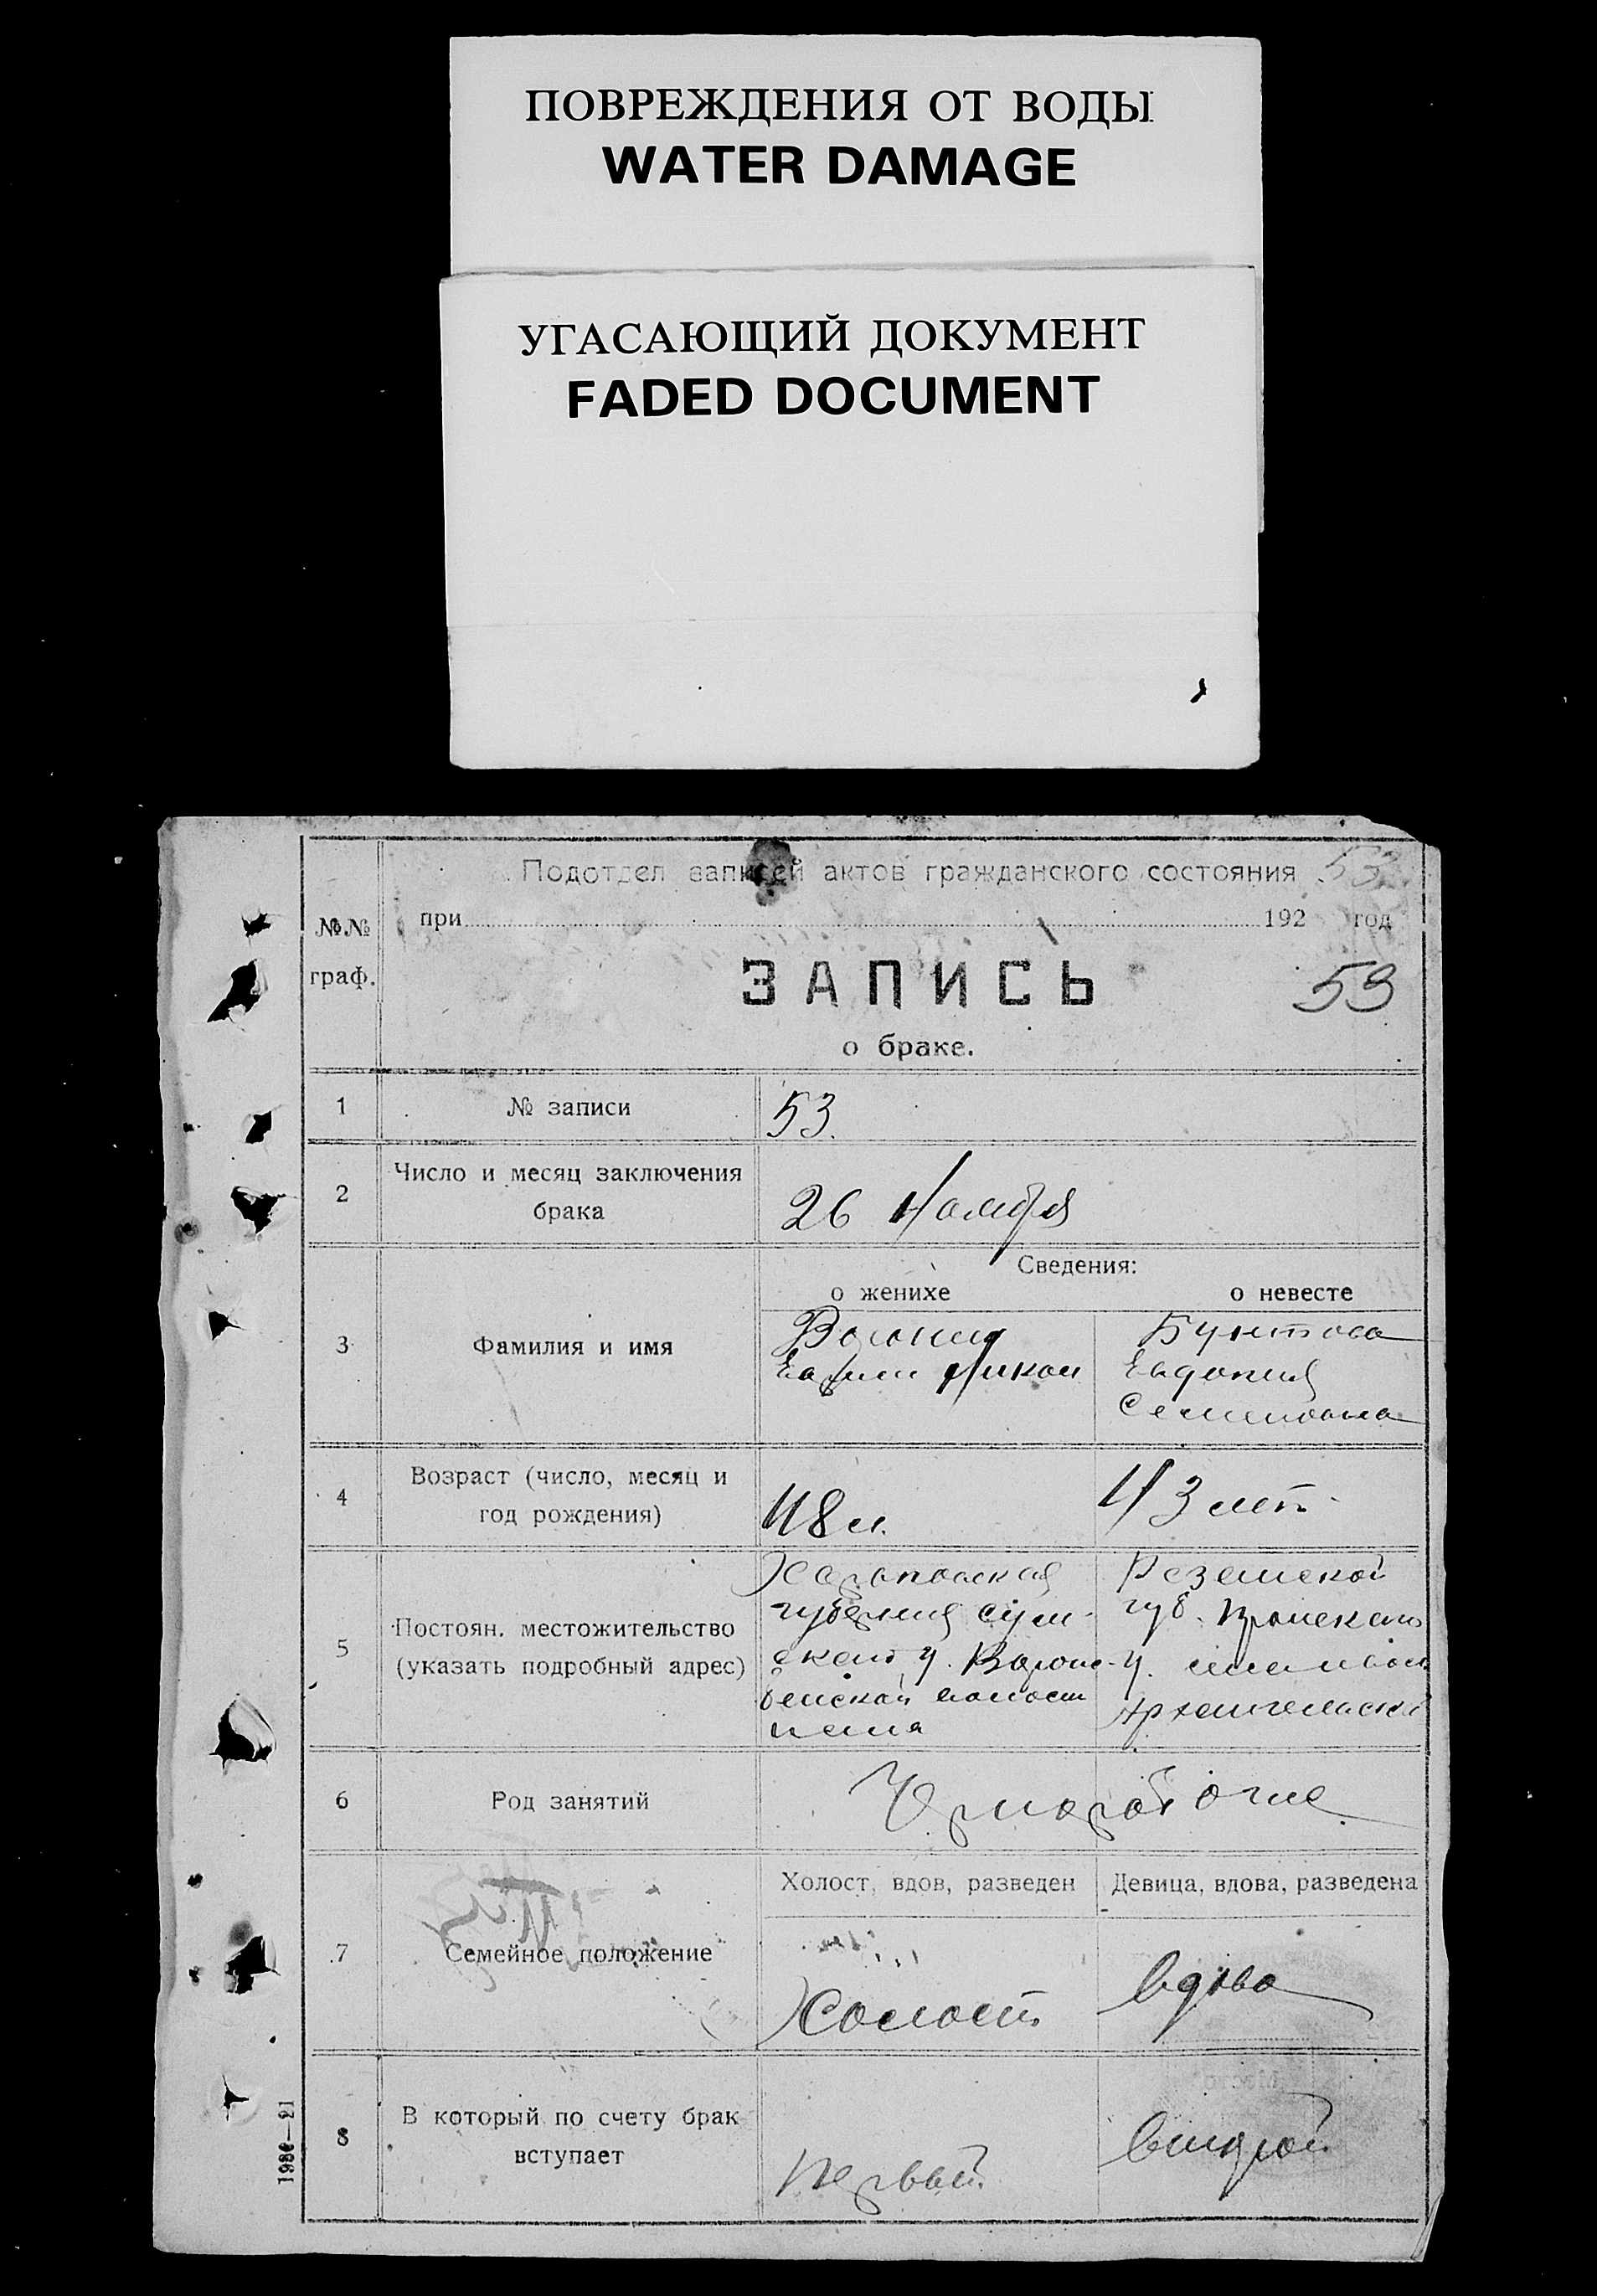 ПОВРЕЖДЕНИЯ ОТ ВОДЫ
WATER DAMAGE
УГАСАЮЩИЙ ДОКУМЕНТ
FADED DOCUMENT
Подотдел записей актов гражданского состояния 53
при 192 год
№№ граф.
ЗАПИСЬ
53
о браке.
1 № записи 53.
2 Число и месяц заключения брака 26 Ноября
Сведения:
о женихе о невесте
3 Фамилия и имя
Бунтова
Евдокия
Семеновна
4 Возраст (число, месяц и год рождения) 48 л. 43 лет.
5 Постоян. местожительство (указать подробный адрес)
Харьковская
губерния Сум-
ского у.
губ. Пронского
у.
Архангельск
6 Род занятий Чернорабочие
Холост, вдов, разведен Девица, вдова, разведена
7 Семейное положение Холост. вдова
8 В который по счету брак вступает Первый. второй
1980—21